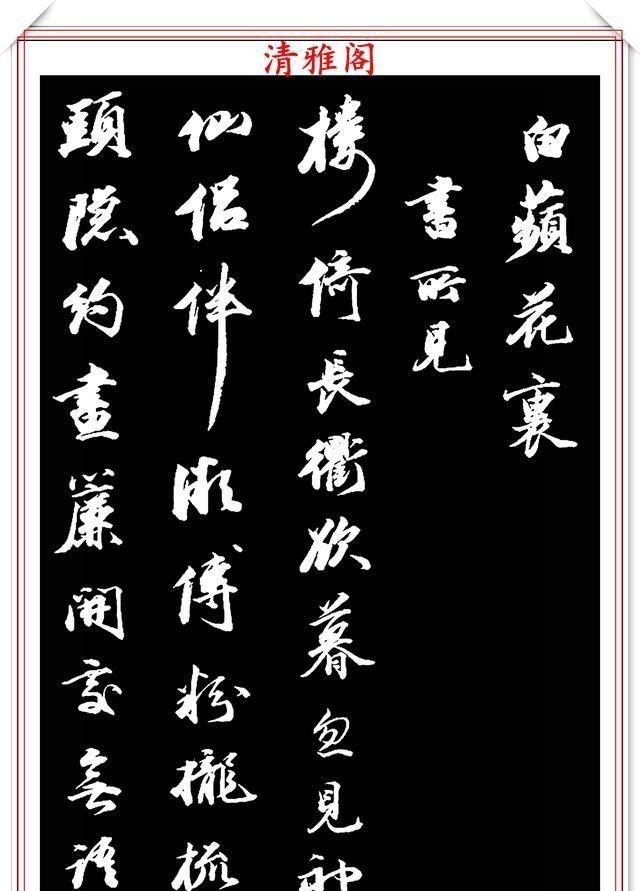 清雅阁
白蘋花裏
書所見
樓倚長衢欲暮忽見神
仙侶伴微傅粉攏梳
頭隱約畫簾開處無語